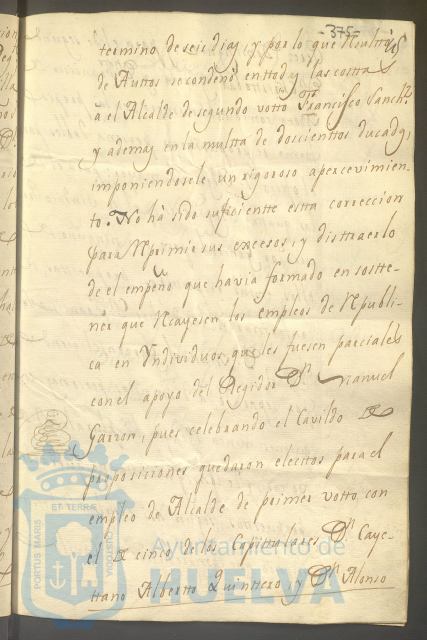 -375-
termino de seis dias, y por lo que Resultta
de Auttos se condenò en ttodas las costtas
à el Alcalde de segundo votto Francisco Sanchz
y ademas en la multta de doscienttos ducads,
imponiendosele un rigoroso apercevimien-
to. No hà sido suficientte estta correccion
para Reprimir sus excesos, y disttraerlo
de el empeño que havia formado en sostte-
nèr que Recayesen los empleos de Republi-
ca en Yndividuos que les fuesen parciales
con el apoyo del Regidor Dn Manuel
Garzon, pues celebrando el Cavildo de
proposiciones quedaron electtos para el
empleo de Alcalde de primer votto con
el de cinco de los Capittulares Dn Caye-
ttano Albertto Quinttero, y Dn Alonso
Ayuntamiento de
HUELVA
PORTUS MARIS
ET TERRÆ
CUSTODIA